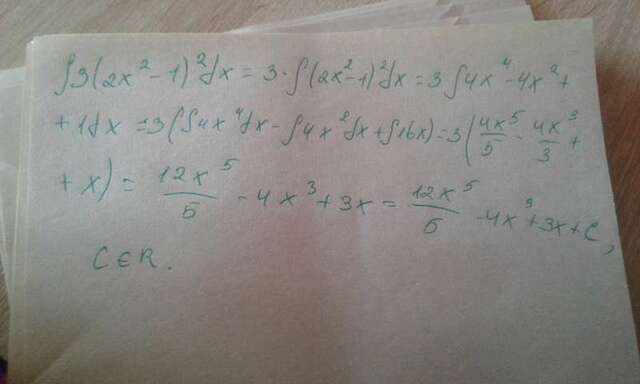 ∫3(2x² - 1)²dx = 3·∫(2x²-1)²dx = 3∫4x⁴ - 4x² +
+ 1dx = 3(∫4x⁴dx - ∫4x²dx + ∫1dx) = 3(4x⁵/5 - 4x³/3 +
+ x) = 12x⁵/5 - 4x³ + 3x = 12x⁵/5 - 4x³ + 3x + C,
C ∈ R.